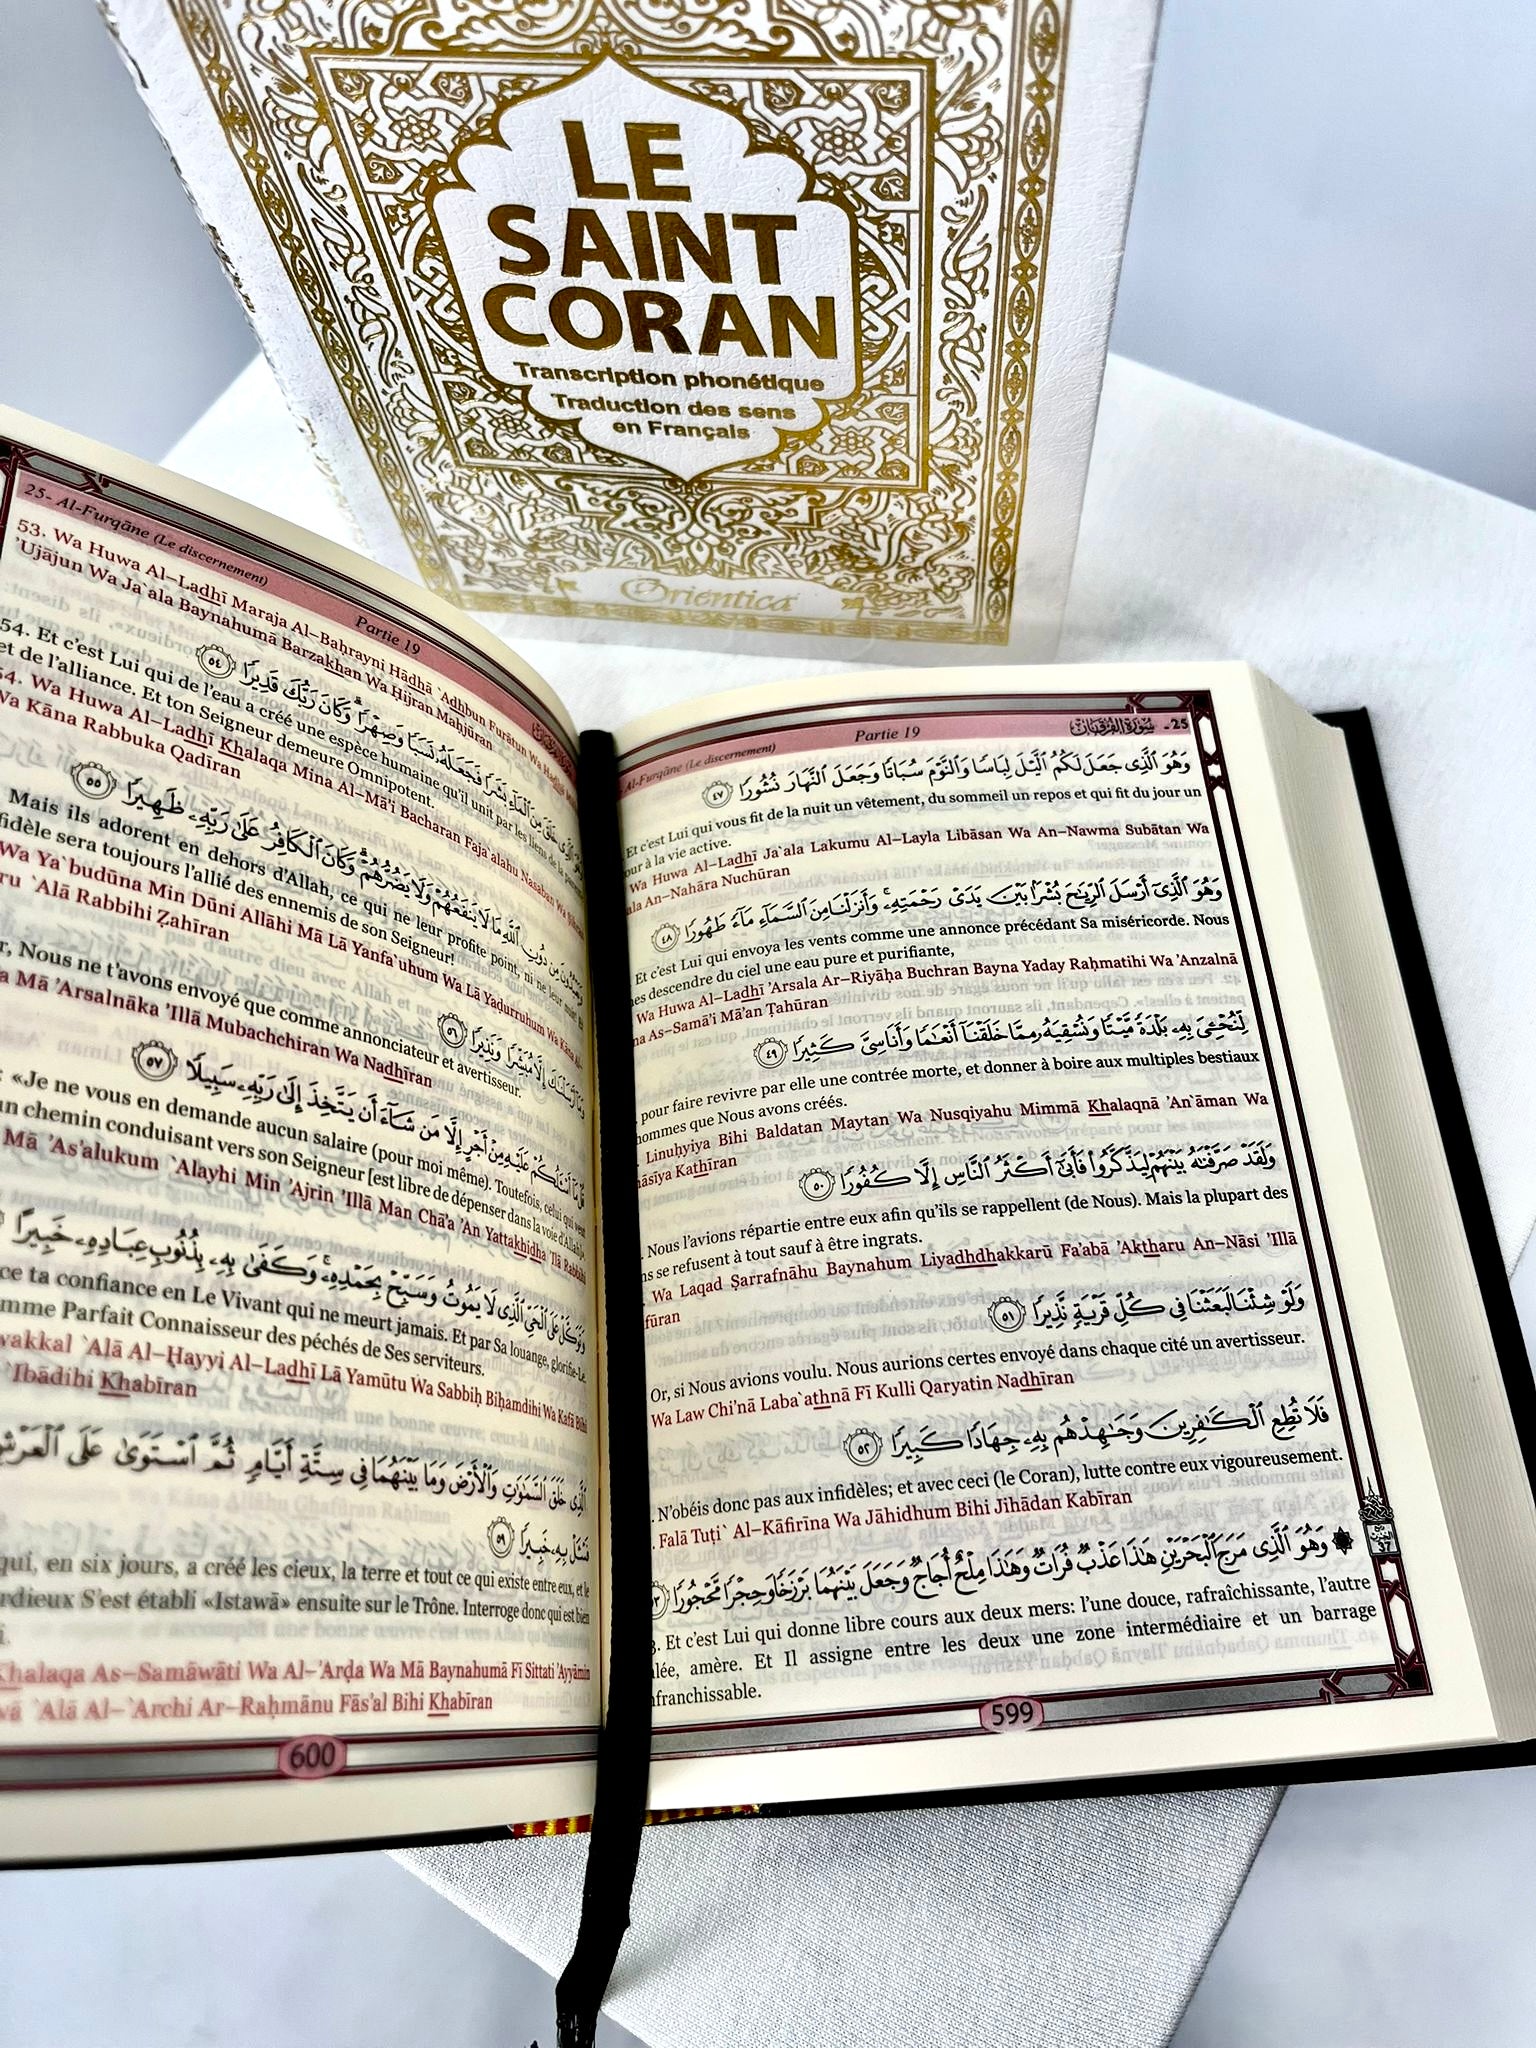 LE
SAINT
CORAN
Transcription phonétique
Traduction des sens
en Français
Orientica
Al-Furqāne (Le discernement)
Partie 19
سورة الفرقان - 25
وَهُوَ ٱلَّذِى جَعَلَ لَكُمُ ٱلَّيْلَ لِبَاسًا وَٱلنَّوْمَ سُبَاتًا وَجَعَلَ ٱلنَّهَارَ نُشُورًا ٤٧
Et c'est Lui qui vous fit de la nuit un vêtement, du sommeil un repos et qui fit du jour un
à la vie active.
Wa Huwa Al-Ladhī Ja`ala Lakumu Al-Layla Libāsan Wa An-Nawma Subātan Wa
An-Nahāra Nuchūran
وَهُوَ ٱلَّذِىٓ أَرْسَلَ ٱلرِّيَـٰحَ بُشْرًۢا بَيْنَ يَدَىْ رَحْمَتِهِۦ ۚ وَأَنزَلْنَا مِنَ ٱلسَّمَآءِ مَآءً طَهُورًا ٤٨
Et c'est Lui qui envoya les vents comme une annonce précédant Sa miséricorde. Nous
descendre du ciel une eau pure et purifiante,
Wa Huwa Al-Ladhī 'Arsala Ar-Riyāĥa Buchran Bayna Yaday Raĥmatihi Wa 'Anzalnā
As-Samā'i Mā'an Ţahūran
لِّنُحْـِۧىَ بِهِۦ بَلْدَةً مَّيْتًا وَنُسْقِيَهُۥ مِمَّا خَلَقْنَآ أَنْعَـٰمًا وَأَنَاسِىَّ كَثِيرًا ٤٩
pour faire revivre par elle une contrée morte, et donner à boire aux multiples bestiaux
hommes que Nous avons créés.
Linuĥyiya Bihi Baldatan Maytan Wa Nusqiyahu Mimmā Khalaqnā 'An`āman Wa
Kathīran
وَلَقَدْ صَرَّفْنَـٰهُ بَيْنَهُمْ لِيَذَّكَّرُوا۟ فَأَبَىٰٓ أَكْثَرُ ٱلنَّاسِ إِلَّا كُفُورًا ٥٠
Nous l'avions répartie entre eux afin qu'ils se rappellent (de Nous). Mais la plupart des
se refusent à tout sauf à être ingrats.
Wa Laqad Şarrafnāhu Baynahum Liyadhdhakkarū Fa'abá 'Aktharu An-Nāsi 'Illā
وَلَوْ شِئْنَا لَبَعَثْنَا فِى كُلِّ قَرْيَةٍ نَّذِيرًا ٥١
Or, si Nous avions voulu. Nous aurions certes envoyé dans chaque cité un avertisseur.
Wa Law Chi'nā Laba`athnā Fī Kulli Qaryatin Nadhīran
فَلَا تُطِعِ ٱلْكَـٰفِرِينَ وَجَـٰهِدْهُم بِهِۦ جِهَادًا كَبِيرًا ٥٢
N'obéis donc pas aux infidèles; et avec ceci (le Coran), lutte contre eux vigoureusement.
Falā Tuţi` Al-Kāfirīna Wa Jāhidhum Bihi Jihādan Kabīran
وَهُوَ ٱلَّذِى مَرَجَ ٱلْبَحْرَيْنِ هَـٰذَا عَذْبٌ فُرَاتٌ وَهَـٰذَا مِلْحٌ أُجَاجٌ وَجَعَلَ بَيْنَهُمَا بَرْزَخًا وَحِجْرًا مَّحْجُورًا
Et c'est Lui qui donne libre cours aux deux mers: l'une douce, rafraîchissante, l'autre
amère. Et Il assigne entre les deux une zone intermédiaire et un barrage
37
599
25- Al-Furqāne (Le discernement)
Partie 19
53. Wa Huwa Al-Ladhī Maraja Al-Baĥrayni Hādhā `Adhbun Furātun Wa
'Ujājun Wa Ja`ala Baynahumā Barzakhan Wa Ĥijran Maĥjūran
فَجَعَلَهُۥ نَسَبًا وَصِهْرًا ۗ وَكَانَ رَبُّكَ قَدِيرًا ٥٤
54. Et c'est Lui qui de l'eau a créé une espèce humaine qu'il unit par les liens de la
et de l'alliance. Et ton Seigneur demeure Omnipotent.
Wa Huwa Al-Ladhī Khalaqa Mina Al-Mā'i Bacharan Faja`alahu Nasabāan Wa
Wa Kāna Rabbuka Qadīran
ٱللَّهِ مَا لَا يَنفَعُهُمْ وَلَا يَضُرُّهُمْ ۗ وَكَانَ ٱلْكَافِرُ عَلَىٰ رَبِّهِۦ ظَهِيرًا ٥٥
Mais ils adorent en dehors d'Allah, ce qui ne leur profite point, ni ne leur
sera toujours l'allié des ennemis de son Seigneur!
Wa Ya`budūna Min Dūni Allāhi Mā Lā Yanfa`uhum Wa Lā Yađurruhum Wa Kāna
`Alá Rabbihi Žahīran
إِلَّا مُبَشِّرًا وَنَذِيرًا ٥٦
Nous ne t'avons envoyé que comme annonciateur et avertisseur.
Mā 'Arsalnāka 'Illā Mubachchiran Wa Nadhīran
قُلْ مَآ أَسْـَٔلُكُمْ عَلَيْهِ مِنْ أَجْرٍ إِلَّا مَن شَآءَ أَن يَتَّخِذَ إِلَىٰ رَبِّهِۦ سَبِيلًا ٥٧
«Je ne vous en demande aucun salaire (pour moi même). Toutefois, celui qui veut
un chemin conduisant vers son Seigneur [est libre de dépenser dans la voie d'Allah]».
Mā 'As'alukum `Alayhi Min 'Ajrin 'Illā Man Chā'a 'An Yattakhidha 'Ilá Rabbihi
وَتَوَكَّلْ عَلَى ٱلْحَىِّ ٱلَّذِى لَا يَمُوتُ وَسَبِّحْ بِحَمْدِهِۦ ۚ وَكَفَىٰ بِهِۦ بِذُنُوبِ عِبَادِهِۦ خَبِيرًا
ta confiance en Le Vivant qui ne meurt jamais. Et par Sa louange, glorifie-Le.
Parfait Connaisseur des péchés de Ses serviteurs.
`Alá Al-Ĥayyi Al-Ladhī Lā Yamūtu Wa Sabbiĥ Biĥamdihi Wa Kafá Bihi
`Ibādihi Khabīran
ٱلَّذِى خَلَقَ ٱلسَّمَـٰوَٰتِ وَٱلْأَرْضَ وَمَا بَيْنَهُمَا فِى سِتَّةِ أَيَّامٍ ثُمَّ ٱسْتَوَىٰ عَلَى ٱلْعَرْشِ
فَسْـَٔلْ بِهِۦ خَبِيرًا ٥٩
qui, en six jours, a créé les cieux, la terre et tout ce qui existe entre eux, et le
S'est établi «Istawā» ensuite sur le Trône. Interroge donc qui est bien
Khalaqa As-Samāwāti Wa Al-'Arđa Wa Mā Baynahumā Fī Sittati 'Ayyāmin
`Alá Al-`Archi Ar-Raĥmānu Fās'al Bihi Khabīran
600